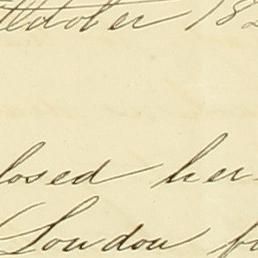 October 18
losed her-
London